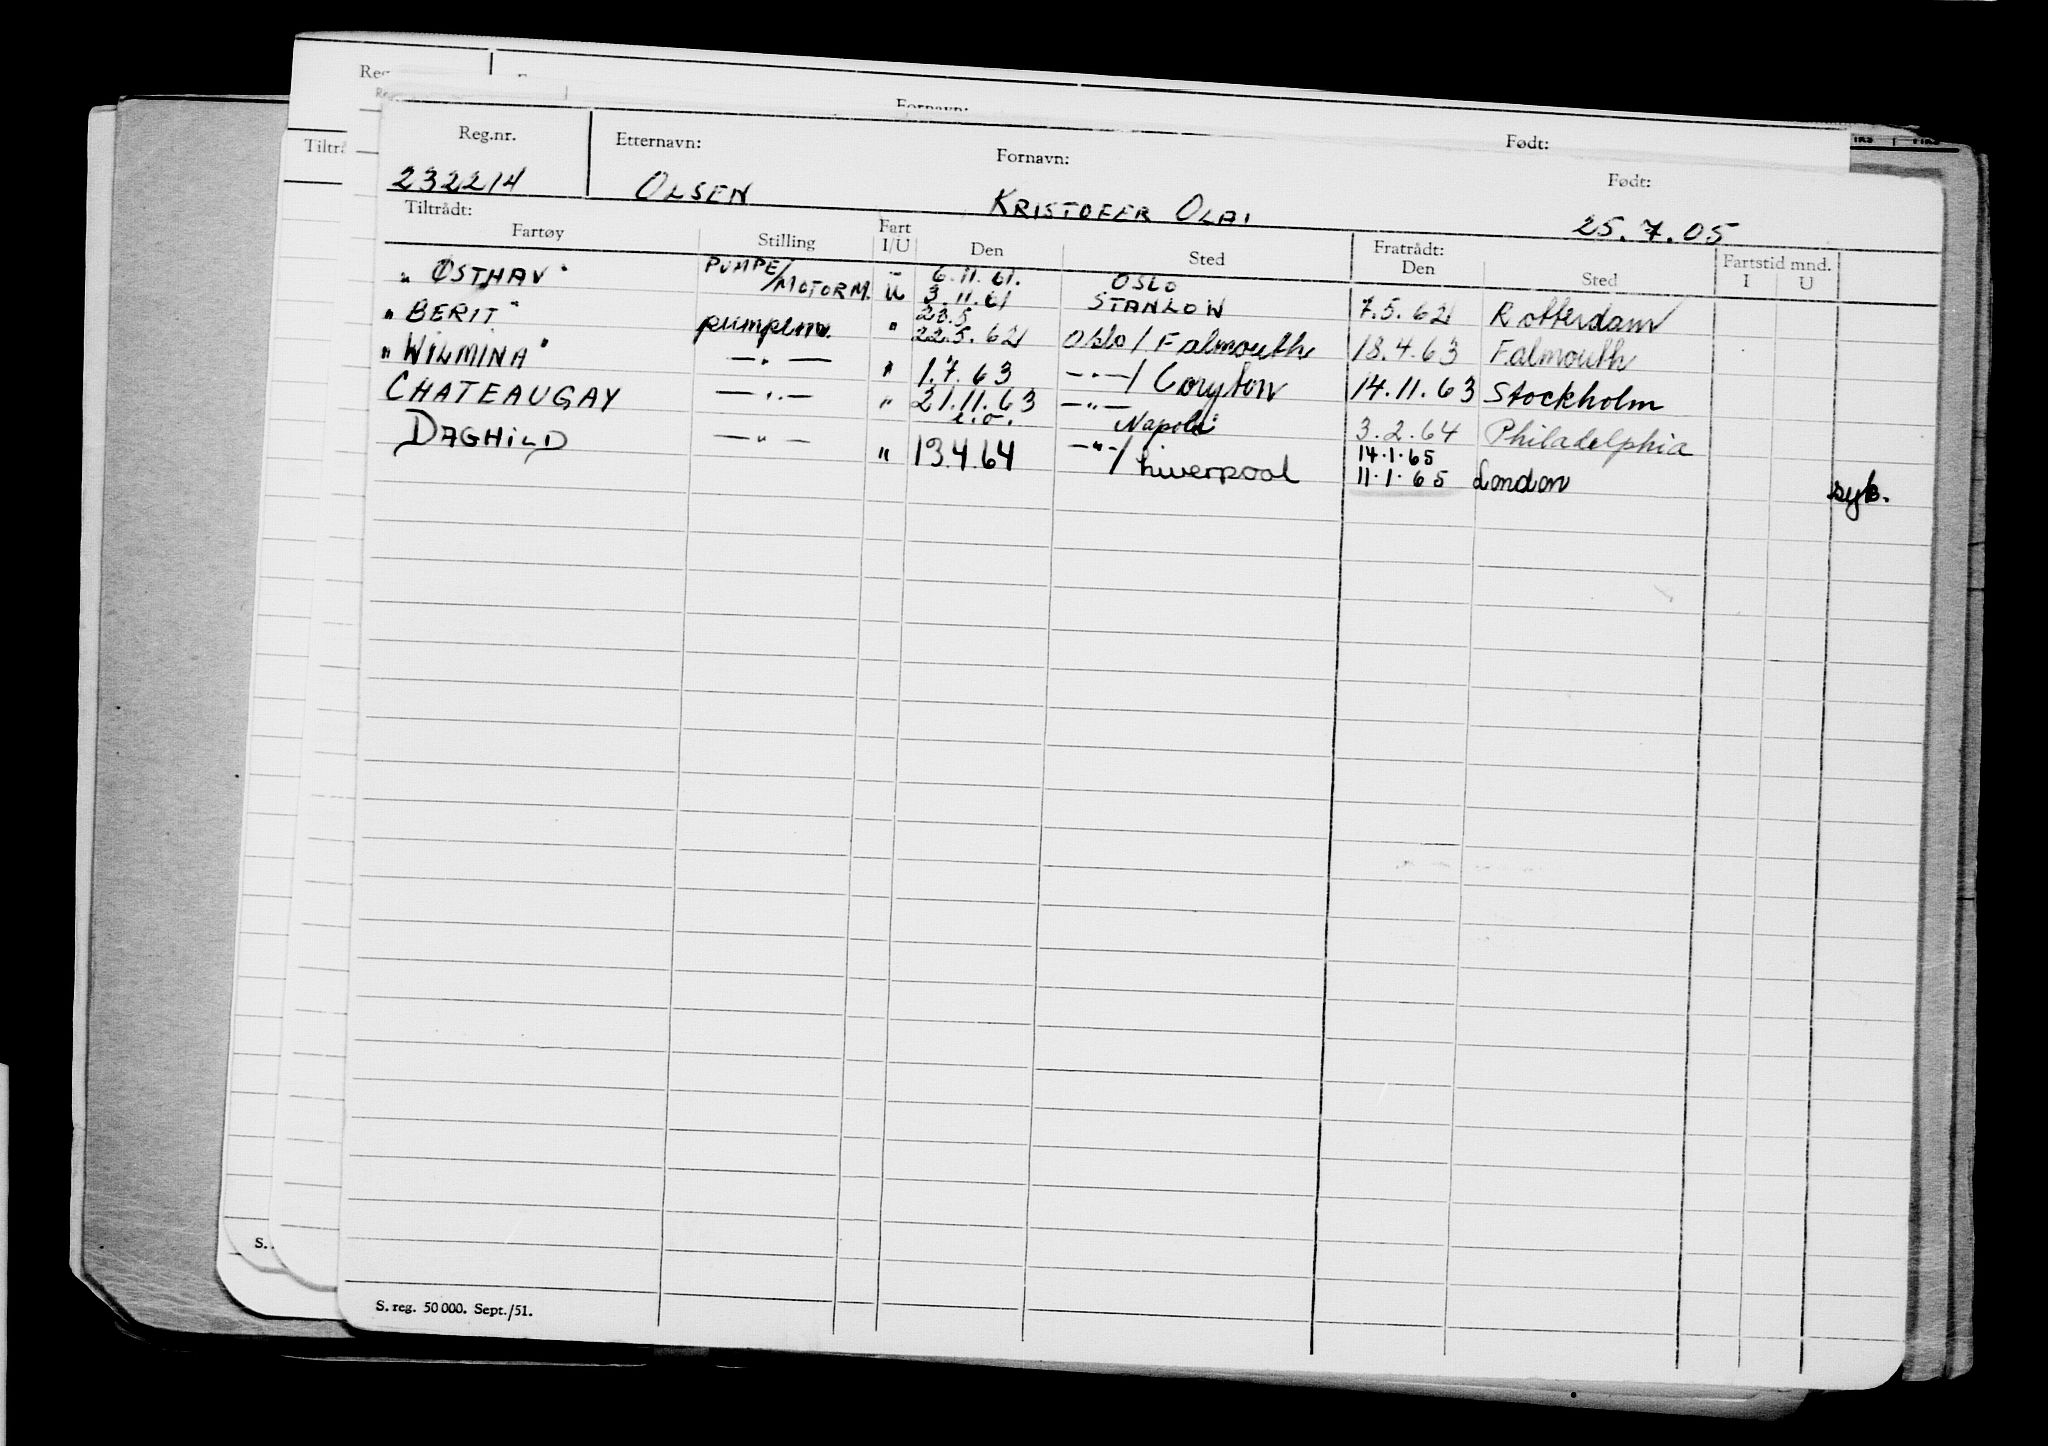 Reg.nr. Etternavn: Fornavn: Født:
232214 OLSEN KRISTOFER OLAI 25.7.05
Tiltrådt: Fratrådt:
Fartøy Stilling Fart I/U Den Sted Den Sted Fartstid mnd. I U
"ØSTHAV" PUMPE/MOTORM. U 6.11.61. 3.11.61 OSLO STANLOW 7.5.62 Rotterdam
"BERIT" pumpem. " 23.5 22.5.62 Oslo/Falmouth 18.4.63 Falmouth
"WILMINA" —"— " 1.7.63 —"—/Coryton 14.11.63 Stockholm
CHATEAUGAY —"— " 21.11.63 i.o. —"— Napoli 3.2.64 Philadelphia
DAGHILD —"— " 13.4.64 —"—/Liverpool 14.1.65 11.1.65 London syk.
S. reg. 50 000. Sept./51.
Fornavn: Født:
Tiltrå
S.